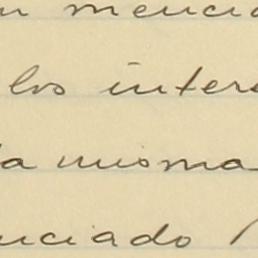 n mencio
los inter
la misma
nciado